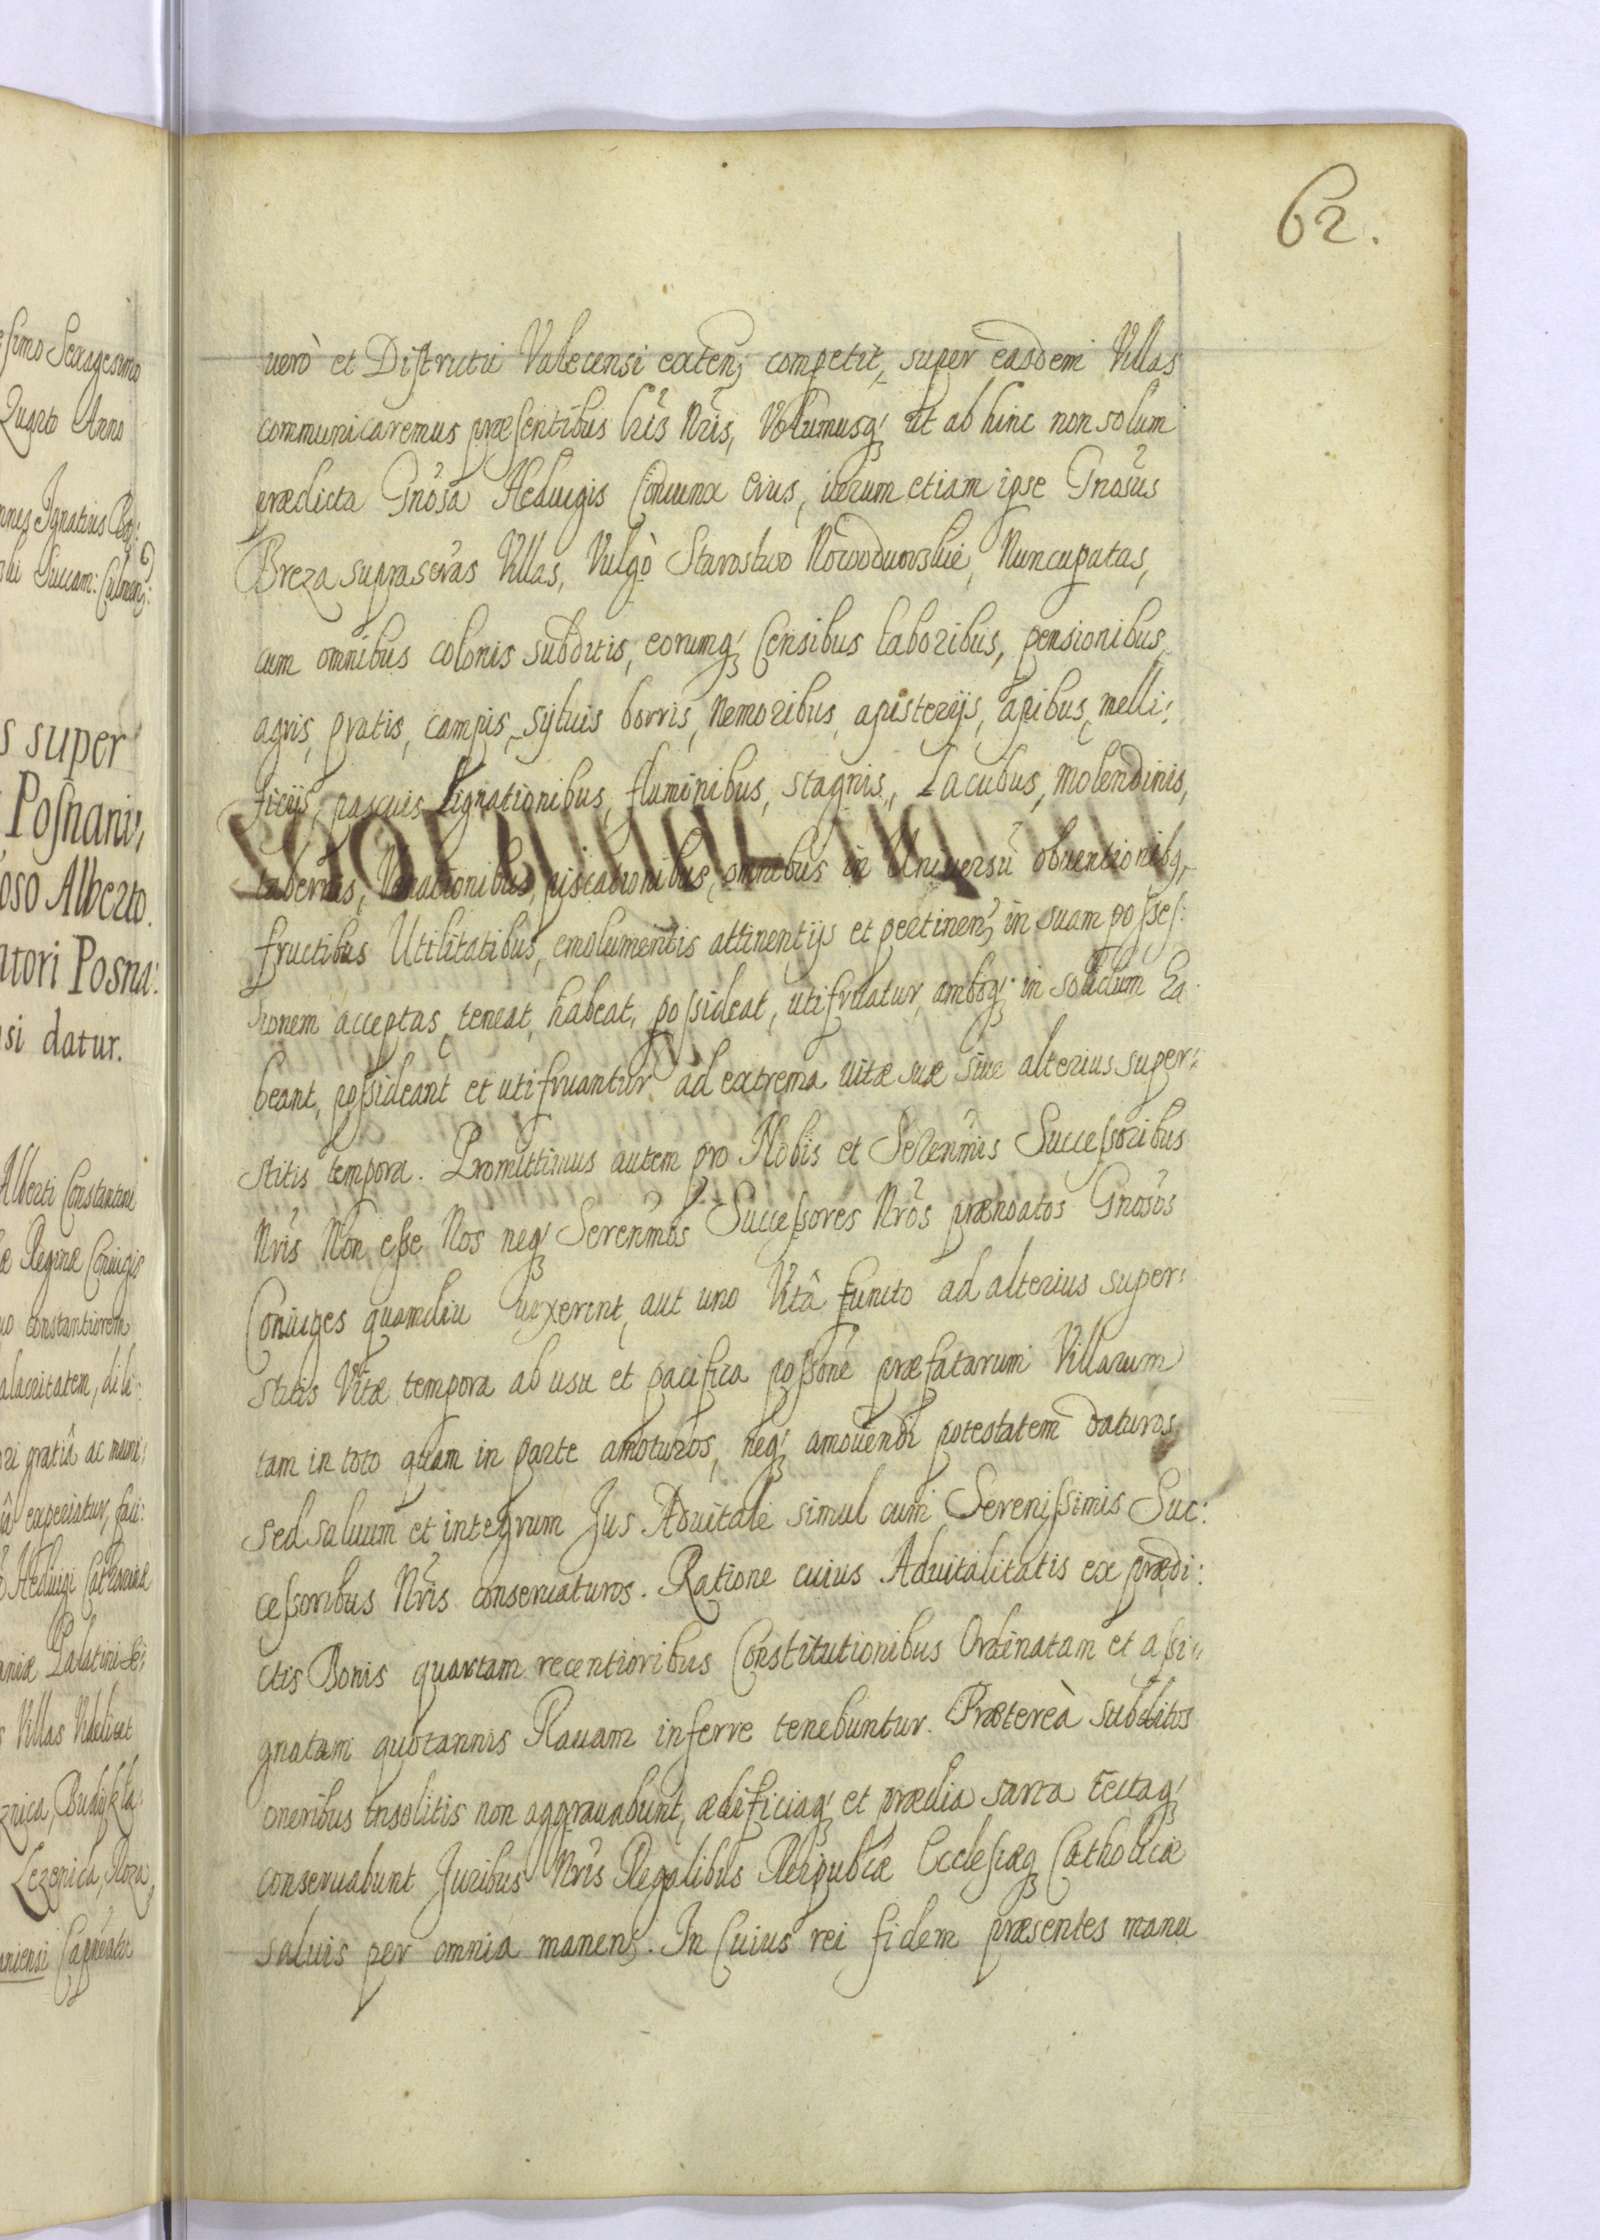 62.
uerò et Districtu Valecensi exten; competit, super easdem Villas
communicaremus præsentibus lris Nris, Volumusq; ut ab hinc non solum
prædicta Gnosa Heduigis Coniunx eius, uerum etiam ipse Gnosus
Breza suprascras Villas, Vulgò Starostwo Nowodworskie, Nuncupatas,
cum omnibus colonis subditis, eorumq; Censibus Laboribus, pensionibus,
agris, pratis, campis, syluis borris, Nemoribus, apisterijs, apibus, melli:
ficijs, pascuis Lignationibus, fluminibus, stagnis, Lacubus, molendinis,
tabernis, Venationibus, piscationibus, omnibus in Vniuersu obuentionibq,
fructibus Utilitatibus, emolumentis attinentijs et pertinen; in suam posses:
sionem acceptas, teneat, habeat, possideat, utifruatur, ambog; in solidum ha:
beant, possideant et utifruantur ad extrema uitæ suæ siue alterius super:
stitis tempora. Promittimus autem pro Nobis et Serenmis Successoribus
Nris Non esse Nos neq; Serenmos Successores Nros prænoatos Gnosos
Coniuges quamdiu uixerint, aut uno Vitâ functo ad alterius super:
stitis Vitæ tempora ab usu et pacifica possone præfatarum Villarum
tam in toto quam in parte amoturos, neq; amouendi potestatem daturos
sed saluum et integrum Jus Aduitale simul cum Serenissimis Suc:
cessoribus Nris conseruaturos. Ratione cuius Aduitalitatis ex prædi:
ctis Bonis quartam recentioribus Constitutionibus Ordinatam et assi:
gnatam quotannis Rauam inferre tenebuntur. Prætereà subditos
oneribus insolitis non aggrauabunt, ædificiaq; et prædia sarta tectaq;
conseruabunt Juribus Nris Regalibus Reipublcæ Ecclesiæq; Catholicæ
saluis per omnia manen;. In Cuius rei fidem præsentes manu